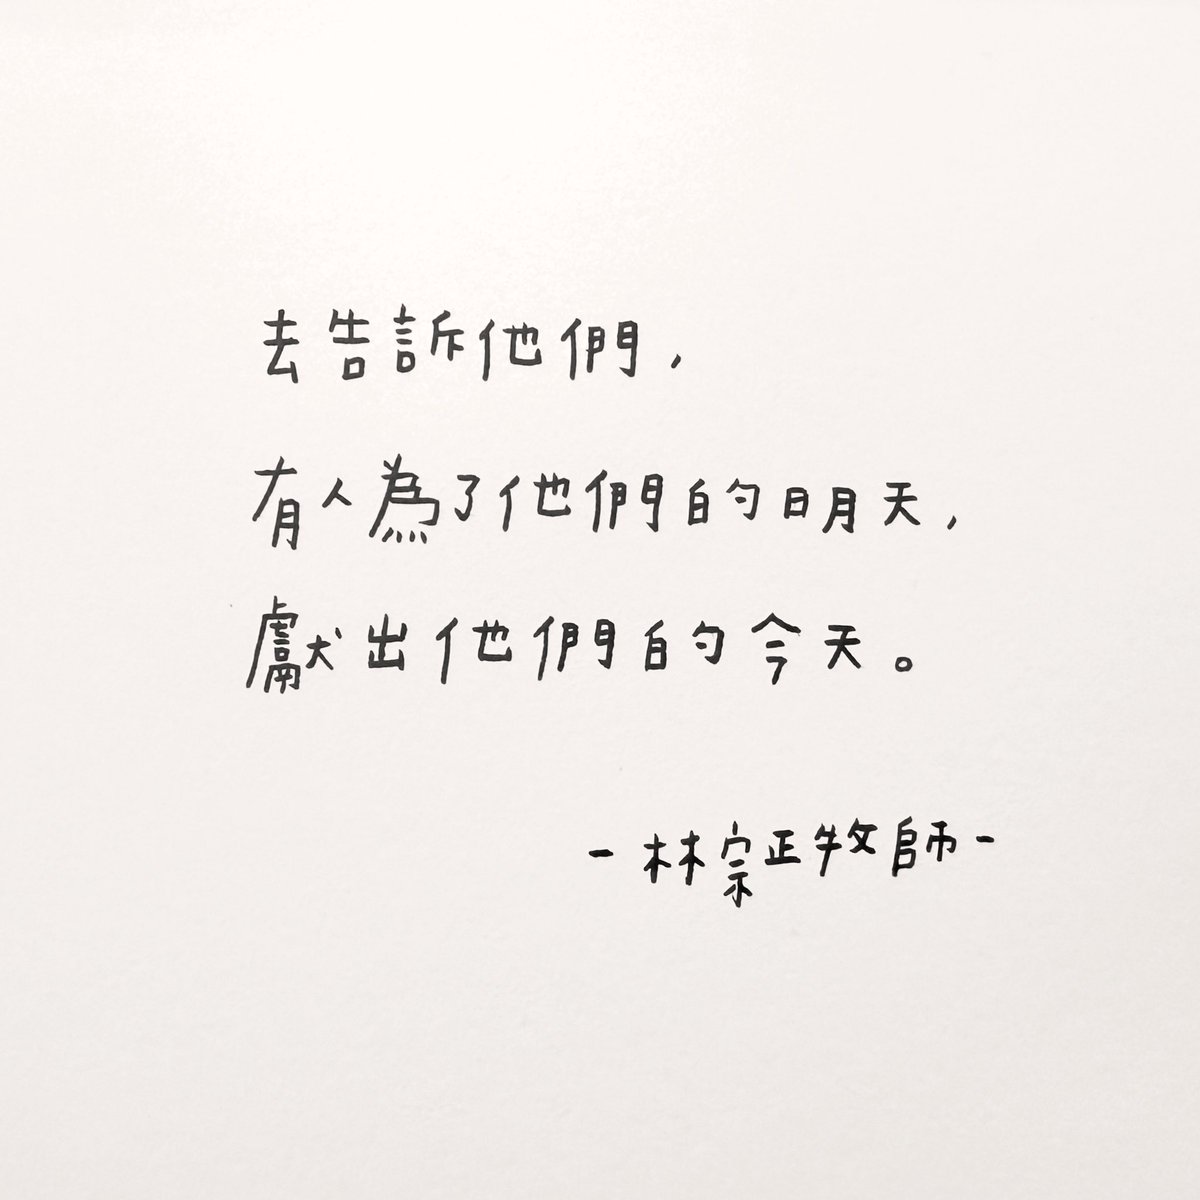 去告訴他們，
有人為了他們的明天，
獻出他們的今天。
-林宗正牧師-